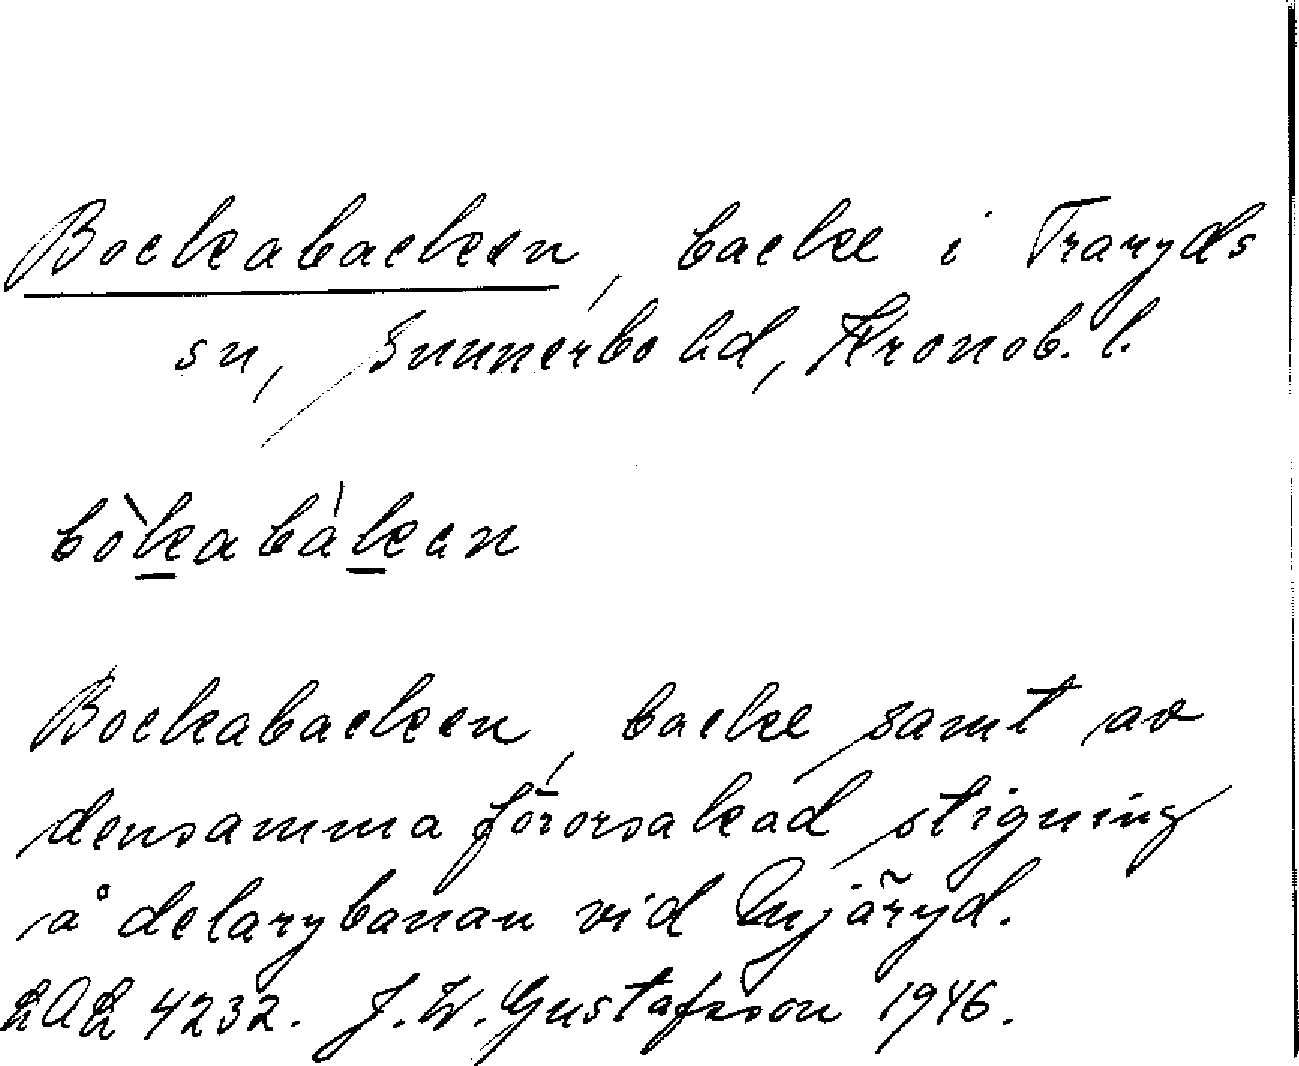 Bockabacken, backe i Traryds
sn, Sunnerbo hd, Kronob. l.
bòkabàkan
Bockabacken, backe samt av
densamma förorsakad stigning
å delarybanan vid Mjäryd.
LAL 4232. J. W. Gustafsson 1946.